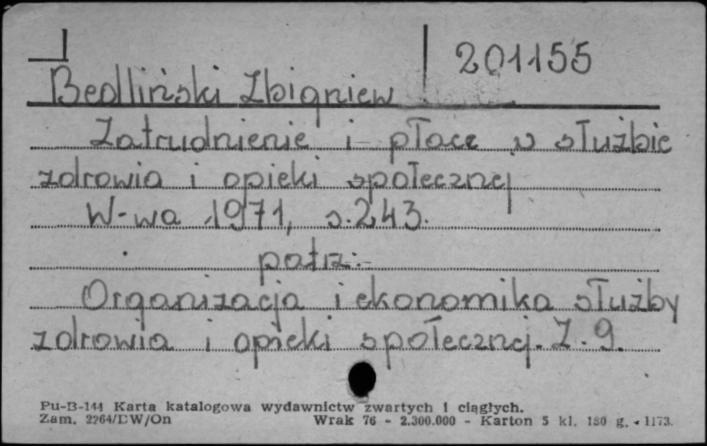 201155
Bedliński Zbigniew
Zatrudnienie i płace w służbie
zdrowia i opieki społecznej
W-wa 1971, s. 243.
patrz:
Organizacja i ekonomika służby
zdrowia i opieki społecznej. Z. 9.
Pu-B-144 Karta katalogowa wydawnictw zwartych i ciągłych.
Zam. 2264/DW/On Wrak 76 - 2.300.000 - Karton 5 kl. 180 g. - 1173.